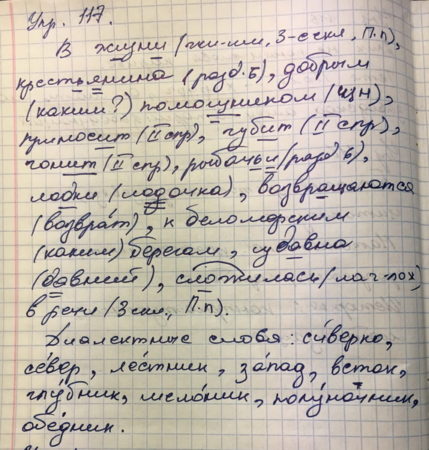 Упр. 117.
В жизни (жи-ши, 3-е скл, П.п),
крестьянина (разд. Ь), добрым
(каким?) помощником (чщн),
приносит (II спр), губит (II спр),
гонит (II спр), рыбачьи (разд Ь),
лодки (лодочка), возвращаются
(возврат), к беломорским
(каким) берегам, издавна
(давний), сложилась (лаг-лож),
в речи (3 скл., П.п).
Диалектные слова: сиверко,
север, летник, запад, всток,
глубник, шелоник, полуночник,
обедник.